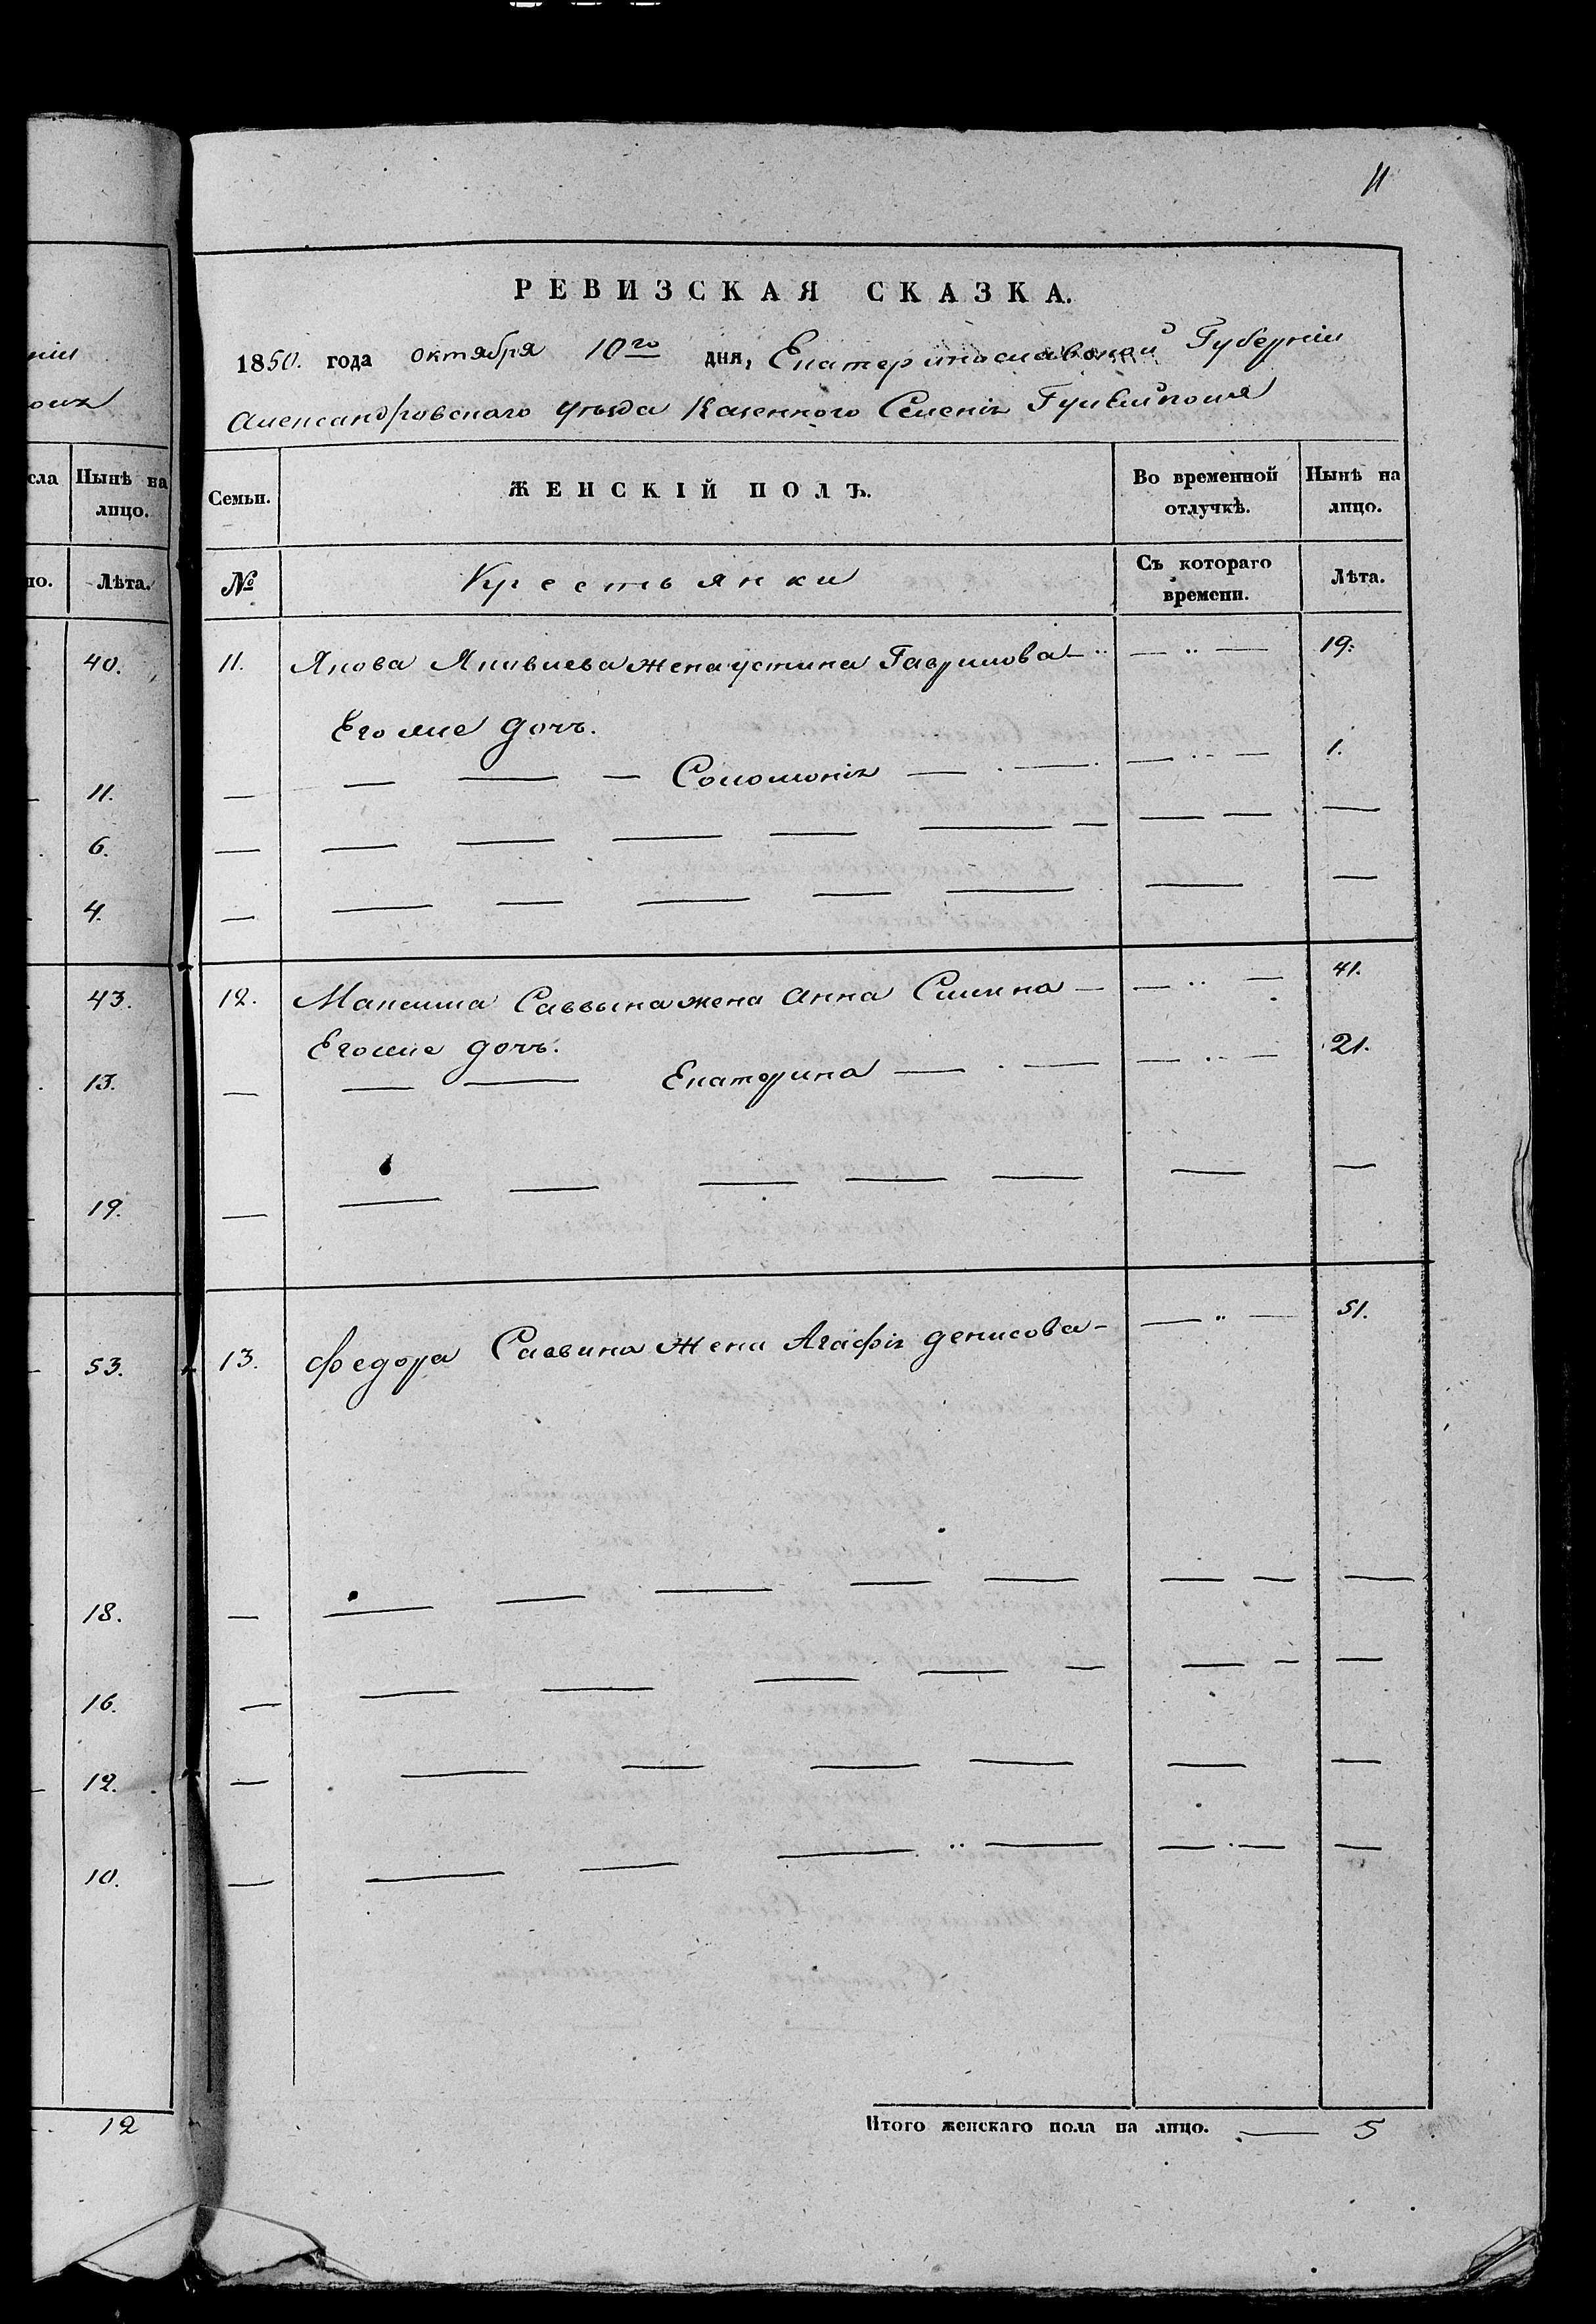 11
РЕВИЗСКАЯ СКАЗКА.
1850. года октября 10го дня, Екатеринославской Губерніи
Александровскаго уѣзда Казенного Селенія Гуляйполя
сла
Нынѣ на лицо.
Семьи.
ЖЕНСКІЙ ПОЛЪ.
Во временной отлучкѣ.
Нынѣ на лицо.
но.
Лѣта.
№
Крестьянки
Съ котораго времени.
Лѣта.
40.
11. Якова Яковлева жена Устина Гаврилова — 19.
Его же дочь.
Соломонія 1.
11.
6.
4.
43.
12. Максима Саввына жена Анна Силина — 41.
Его же дочь.
Екатерина 21.
13.
19.
53.
13. Федора Саввина жена Агафія Денисова — 51.
18.
16.
12.
10.
12
Итого женскаго пола на лицо. — 5